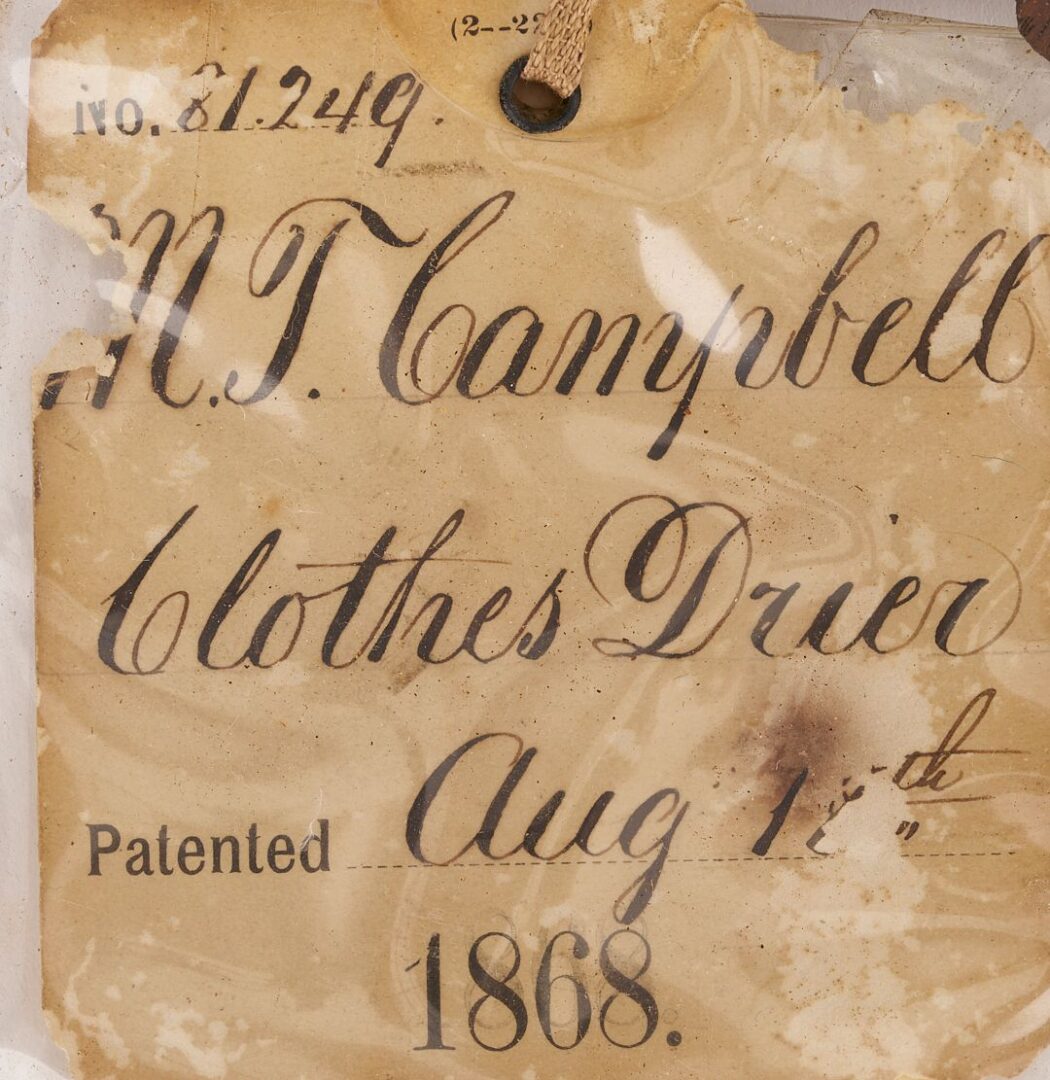 No. 81.249.
M.T. Campbell
Clothes Drier
Patented Aug 18th
1868.